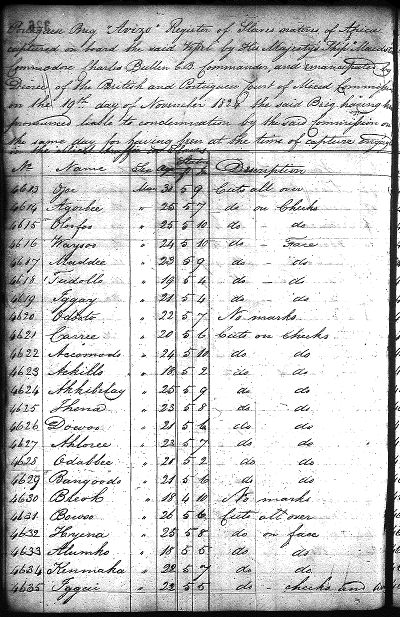 Portuguese Brig "Avizo" Register of Slaves natives of Africa
captured on board the said Vessel by His Majesty's Ship Maidstone
Commodore Charles Bullen C.B. Commander, and emancipated by
Decree of the British and Portuguese Court of Mixed Commission
on the 19th day of November 182 the said Brig having been
pronounced liable to condemnation by the said Commission on
the same day for having been at the time of capture engaged
No Name Sex Age Description
4613 Ojo Man 31 5 9 Cuts all over
4614 Agorbee " 25 5 7 do on Cheeks
4615 " 25 5 10 do - do
4616 Waysoo " 24 5 10 do - Face
4617 Maddee " 23 5 9 do - do
4618 Tudollo " 19 5 4 do - do
4619 Iggay " 21 5 4 do do
4620 " 22 5 7 No marks
4621 Carree " 20 5 6 Cuts on Cheeks
4622 Accomodo " 24 5 10 do do
4623 Ackillo " 18 5 2 do do
4624 Akkibelay " 25 5 9 do do
4625 " 23 5 8 do do
4626 Dowoo " 21 5 6 do do
4627 Ahloree " 23 5 7 do do
4628 Odabbee " 20 5 2 do do
4629 Bangoodo " 21 5 6 do do
4630 Bleok " 18 4 10 No marks
4631 Bowoo " 26 5 6 Cuts all over
4632 Hyena " 25 5 8 do on face
4633 Alumko " 18 5 5 do do
4634 Kinmaka " 22 5 7 do do
4635 " 22 5 5 do - cheeks and